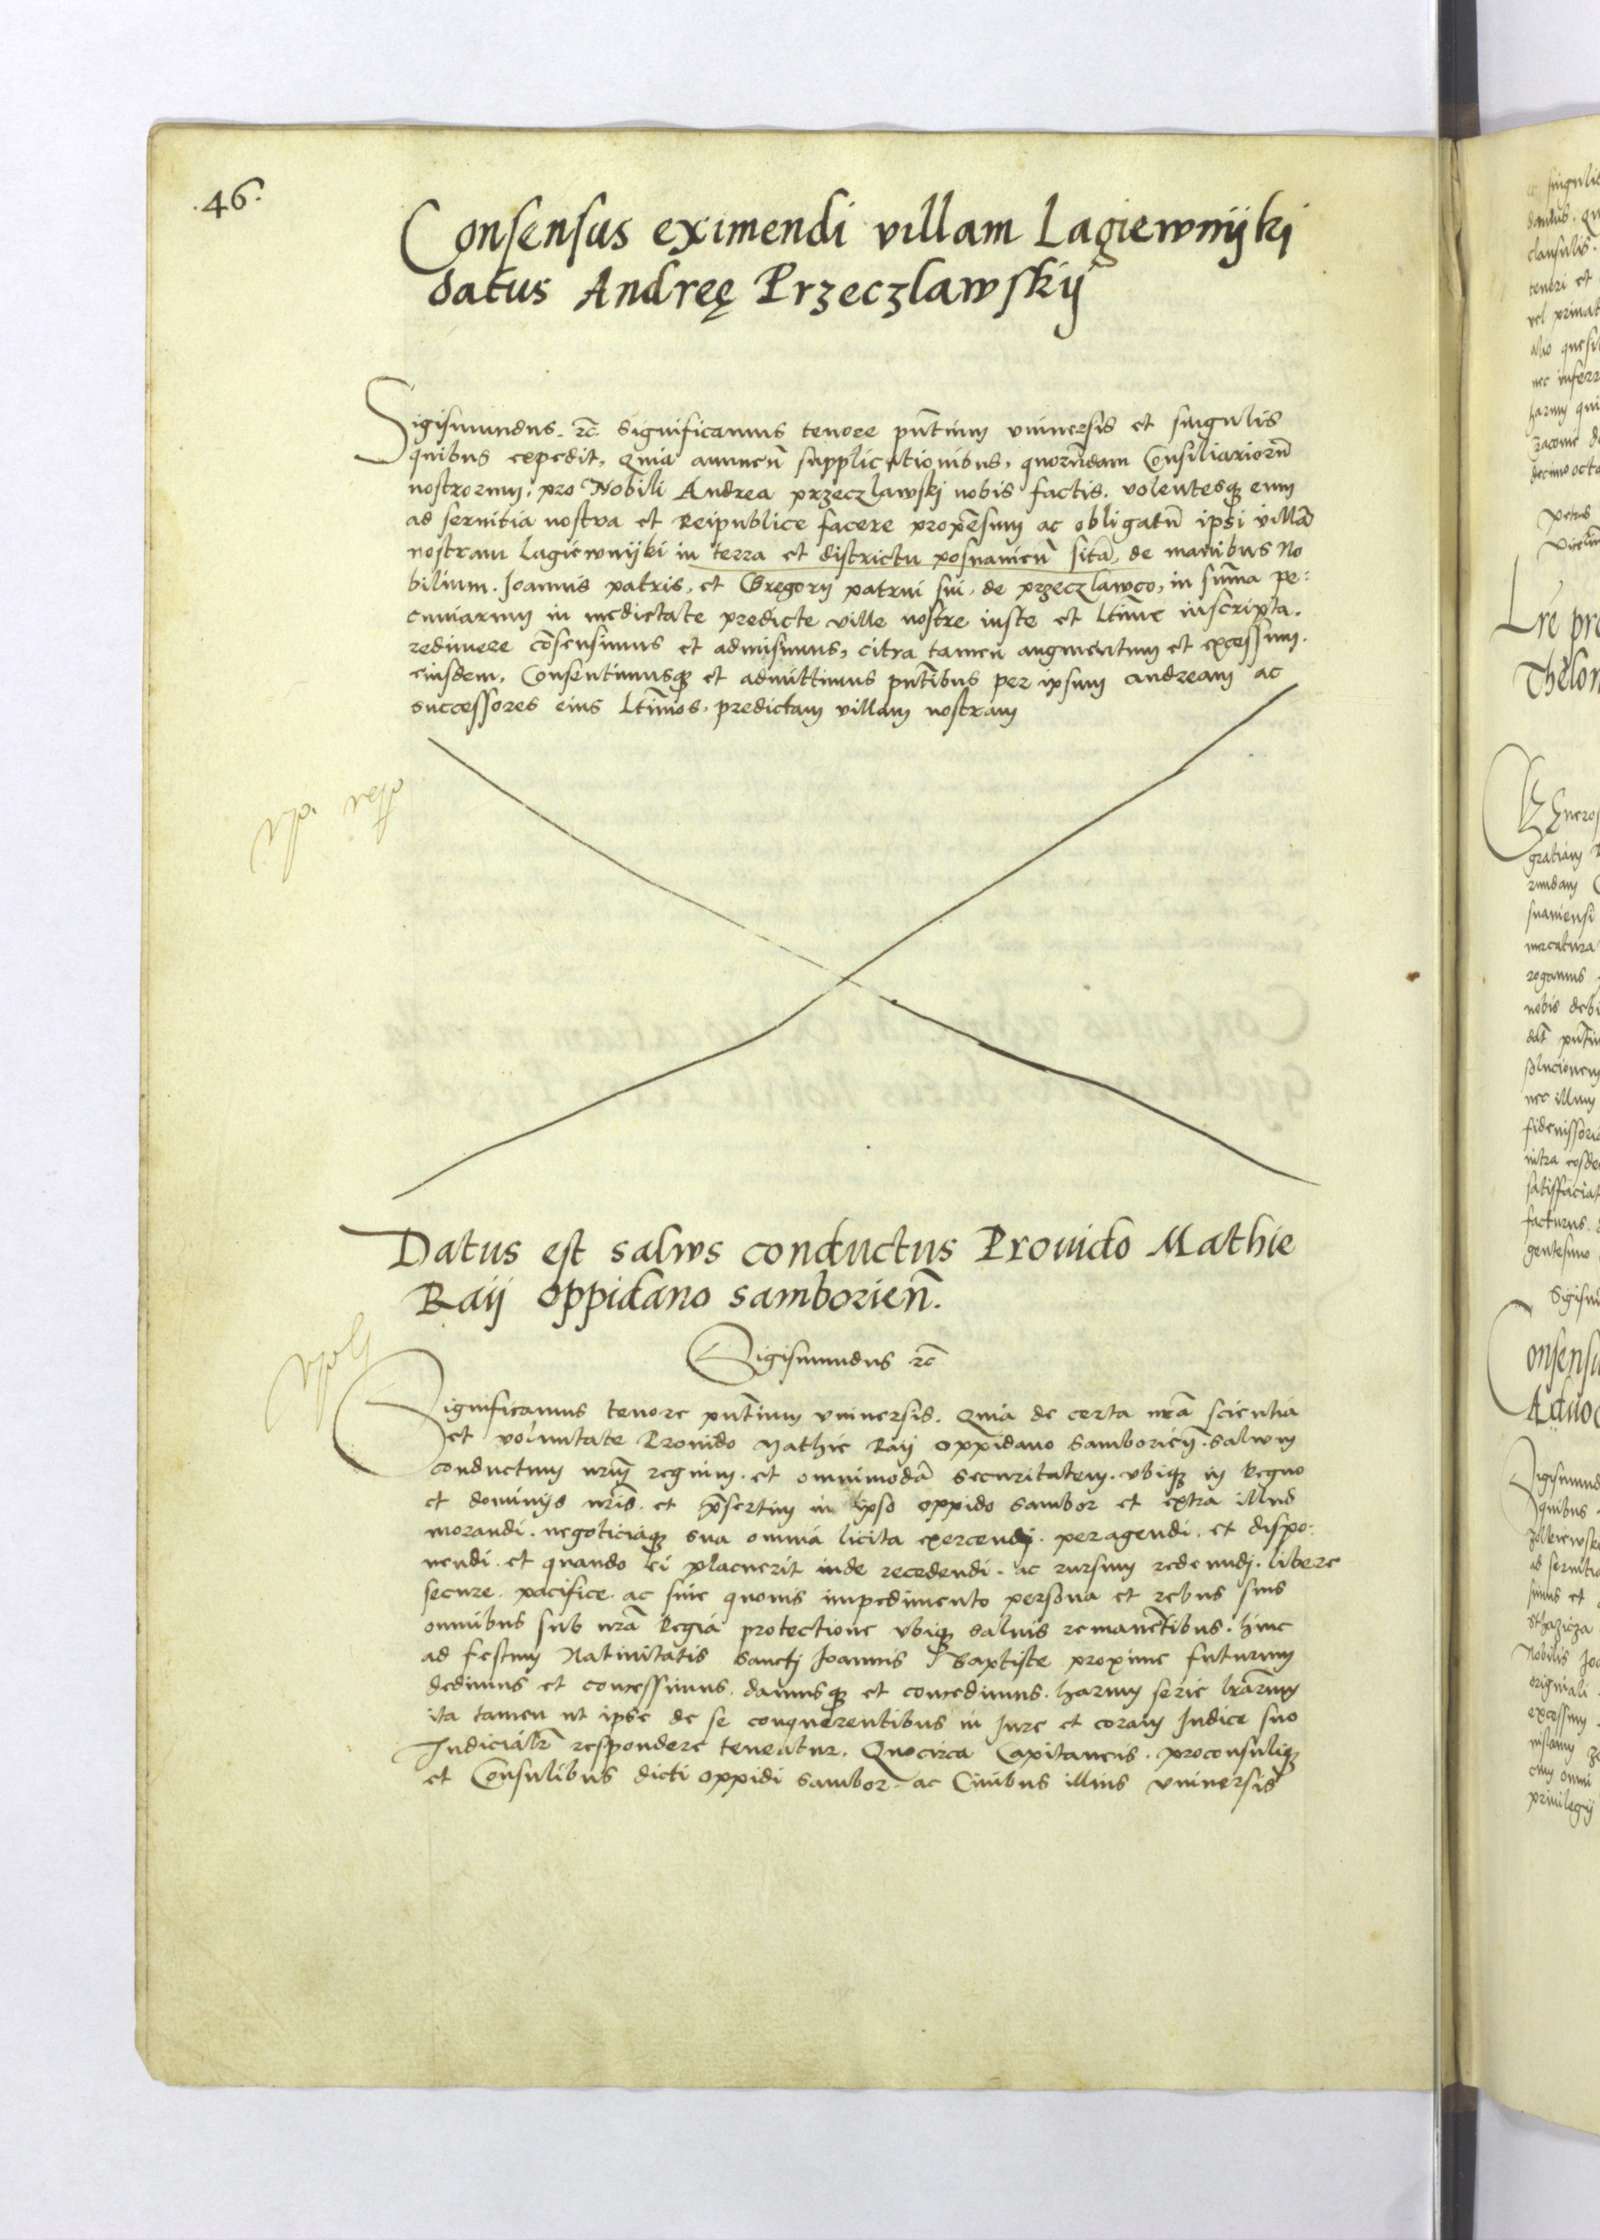 .46.
Consensus eximendi villam Lagiewnijki
datus Andreę Przeczlawskij
Sigismundus. rc̄. Significamus tenore pn̄tium vniuersis et singulis
quibus expedit, Quia annuen̄ supplicationibus, quorūdam Consiliariorū
nostrorum, pro Nobili Andrea przeczlawskj nobis factis. volentesq; eum
ad seruitia nostra et Reipublice facere propēsum ac obligatū ipsi villā
nostram Lagiewnijki in terra et districtu posnanien̄ sitā, de manibus No
bilium. Joannis patris, et Gregorij patrui sui, de przeczlawco, in sum̄a pe:
cuniarum in medietate predicte ville nostre iuste et Ltime inscripta.
redimere cōsensimus et admisimus, citra tamen augmentum et excessum.
eiusdem, Consentimusq; et admittimus pn̄tibus per ipsum andream ac
successores eius Ltimos, predictam villam nostram
Datus est saluus conductus Prouido Mathie
Raij oppidano samborien̄.
Sigismundus rc̄
Significamus tenore pn̄tium vniuersis. Quia de certa nr̄a scientia
et voluntate Prouido Mathie Raij oppidano Samborien̄. saluum
conductum nr̄m regium. et omnimodā securitatem. vbiq; in Regno
et dominijs nr̄is. et p̄sertim in ipso oppido Sambor et extra illud
morandi. negoticiaq; sua omnia licita exercendj. peragendi. et dispo:
nendi. et quando ei placuerit inde recedendi. ac rursum redeundj. libere
secure. pacifice. ac sine quouis impedimento persona et rebus suis
omnibus sub nr̄a Regia protectione vbiq; saluis remanētibus. hinc
ad festum Natiuitatis Sanctj Joannis Baptiste proxime futurum
dedimus et concessimus. damusq; et concedimus. harum serie lr̄arum
ita tamen ut ipse de se conquerentibus in Jure et coram Judice suo
Judicialr̄ respondere teneatur. Quocirca Capitaneis. proconsuliq;
et Cōnsulibus dicti oppidi Sambor. ac Ciuibus illius vniuersis